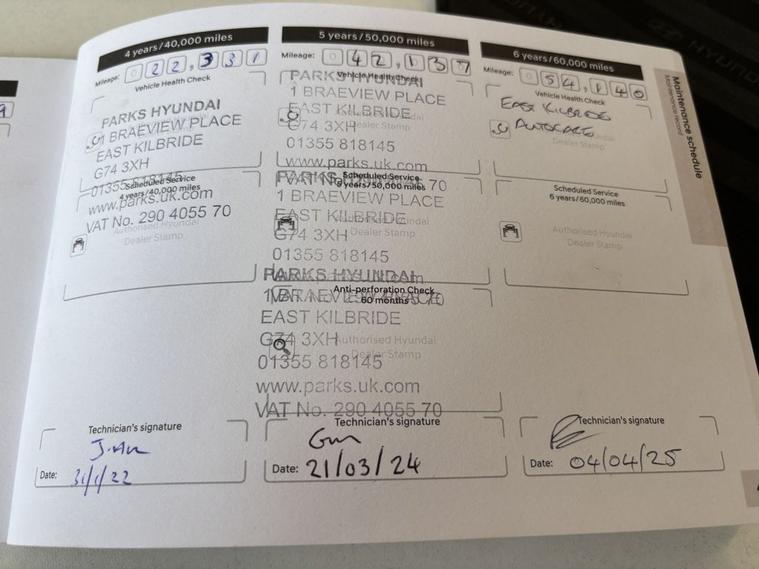 4 years/40,000 miles
Mileage: 0 22,331
Vehicle Health Check
PARKS HYUNDAI
1 BRAEVIEW PLACE
EAST KILBRIDE
G74 3XH
01355 818145
Scheduled Service
4 years/40,000 miles
www.parks.uk.com
VAT No. 290 4055 70
Authorised Hyundai
Dealer Stamp
Technician's signature
Date: 31/1/22
5 years/50,000 miles
Mileage: 0 42,137
Vehicle Health Check
PARKS HYUNDAI
1 BRAEVIEW PLACE
EAST KILBRIDE
G74 3XH
Dealer Stamp
01355 818145
www.parks.uk.com
Scheduled Service
5 years/50,000 miles
1 BRAEVIEW PLACE
EAST KILBRIDE
Authorised Hyundai
G74 3XH
Dealer Stamp
01355 818145
PARKS HYUNDAI
Anti-perforation Check
60 months
EAST KILBRIDE
G74 3XH
Authorised Hyundai
Dealer Stamp
01355 818145
www.parks.uk.com
VAT No. 290 4055 70
Technician's signature
Date: 21/03/24
6 years/60,000 miles
Mileage: 0 54,140
Vehicle Health Check
EAST KILBRIDE
AUTOCARE
Dealer Stamp
Scheduled Service
6 years/60,000 miles
Authorised Hyundai
Dealer Stamp
Technician's signature
Date: 04/04/25
Maintenance schedule
Maintenance record